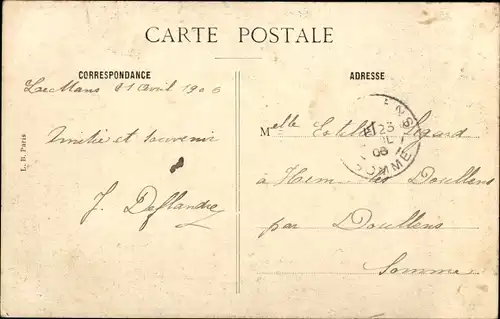 CARTE POSTALE
CORRESPONDANCE
ADRESSE
Le Mans 21 Avril 1906
Amitié et souvenir
J. Deflandre
L. B. Paris
Melle Estelle Legard
à Hem les Doullens
par Doullens
Somme
23
06
SOMME